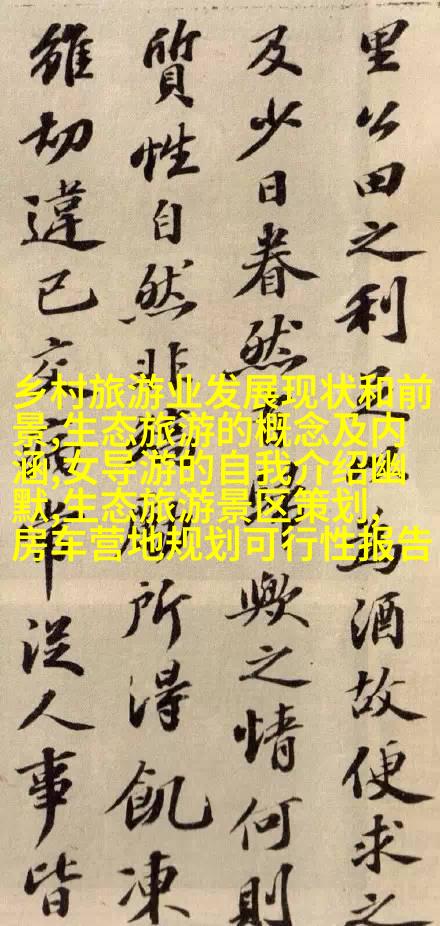 乡村旅游业发展现状和前
景,生态旅游的概念及内
涵,女导游的自我介绍幽
默,生态旅游景区策划,
房车营地规划可行性报告
里公田之利足為酒故便求之
及少日眷然歟之情何則
質性自然非所得飢凍
雖切違己交從人事皆